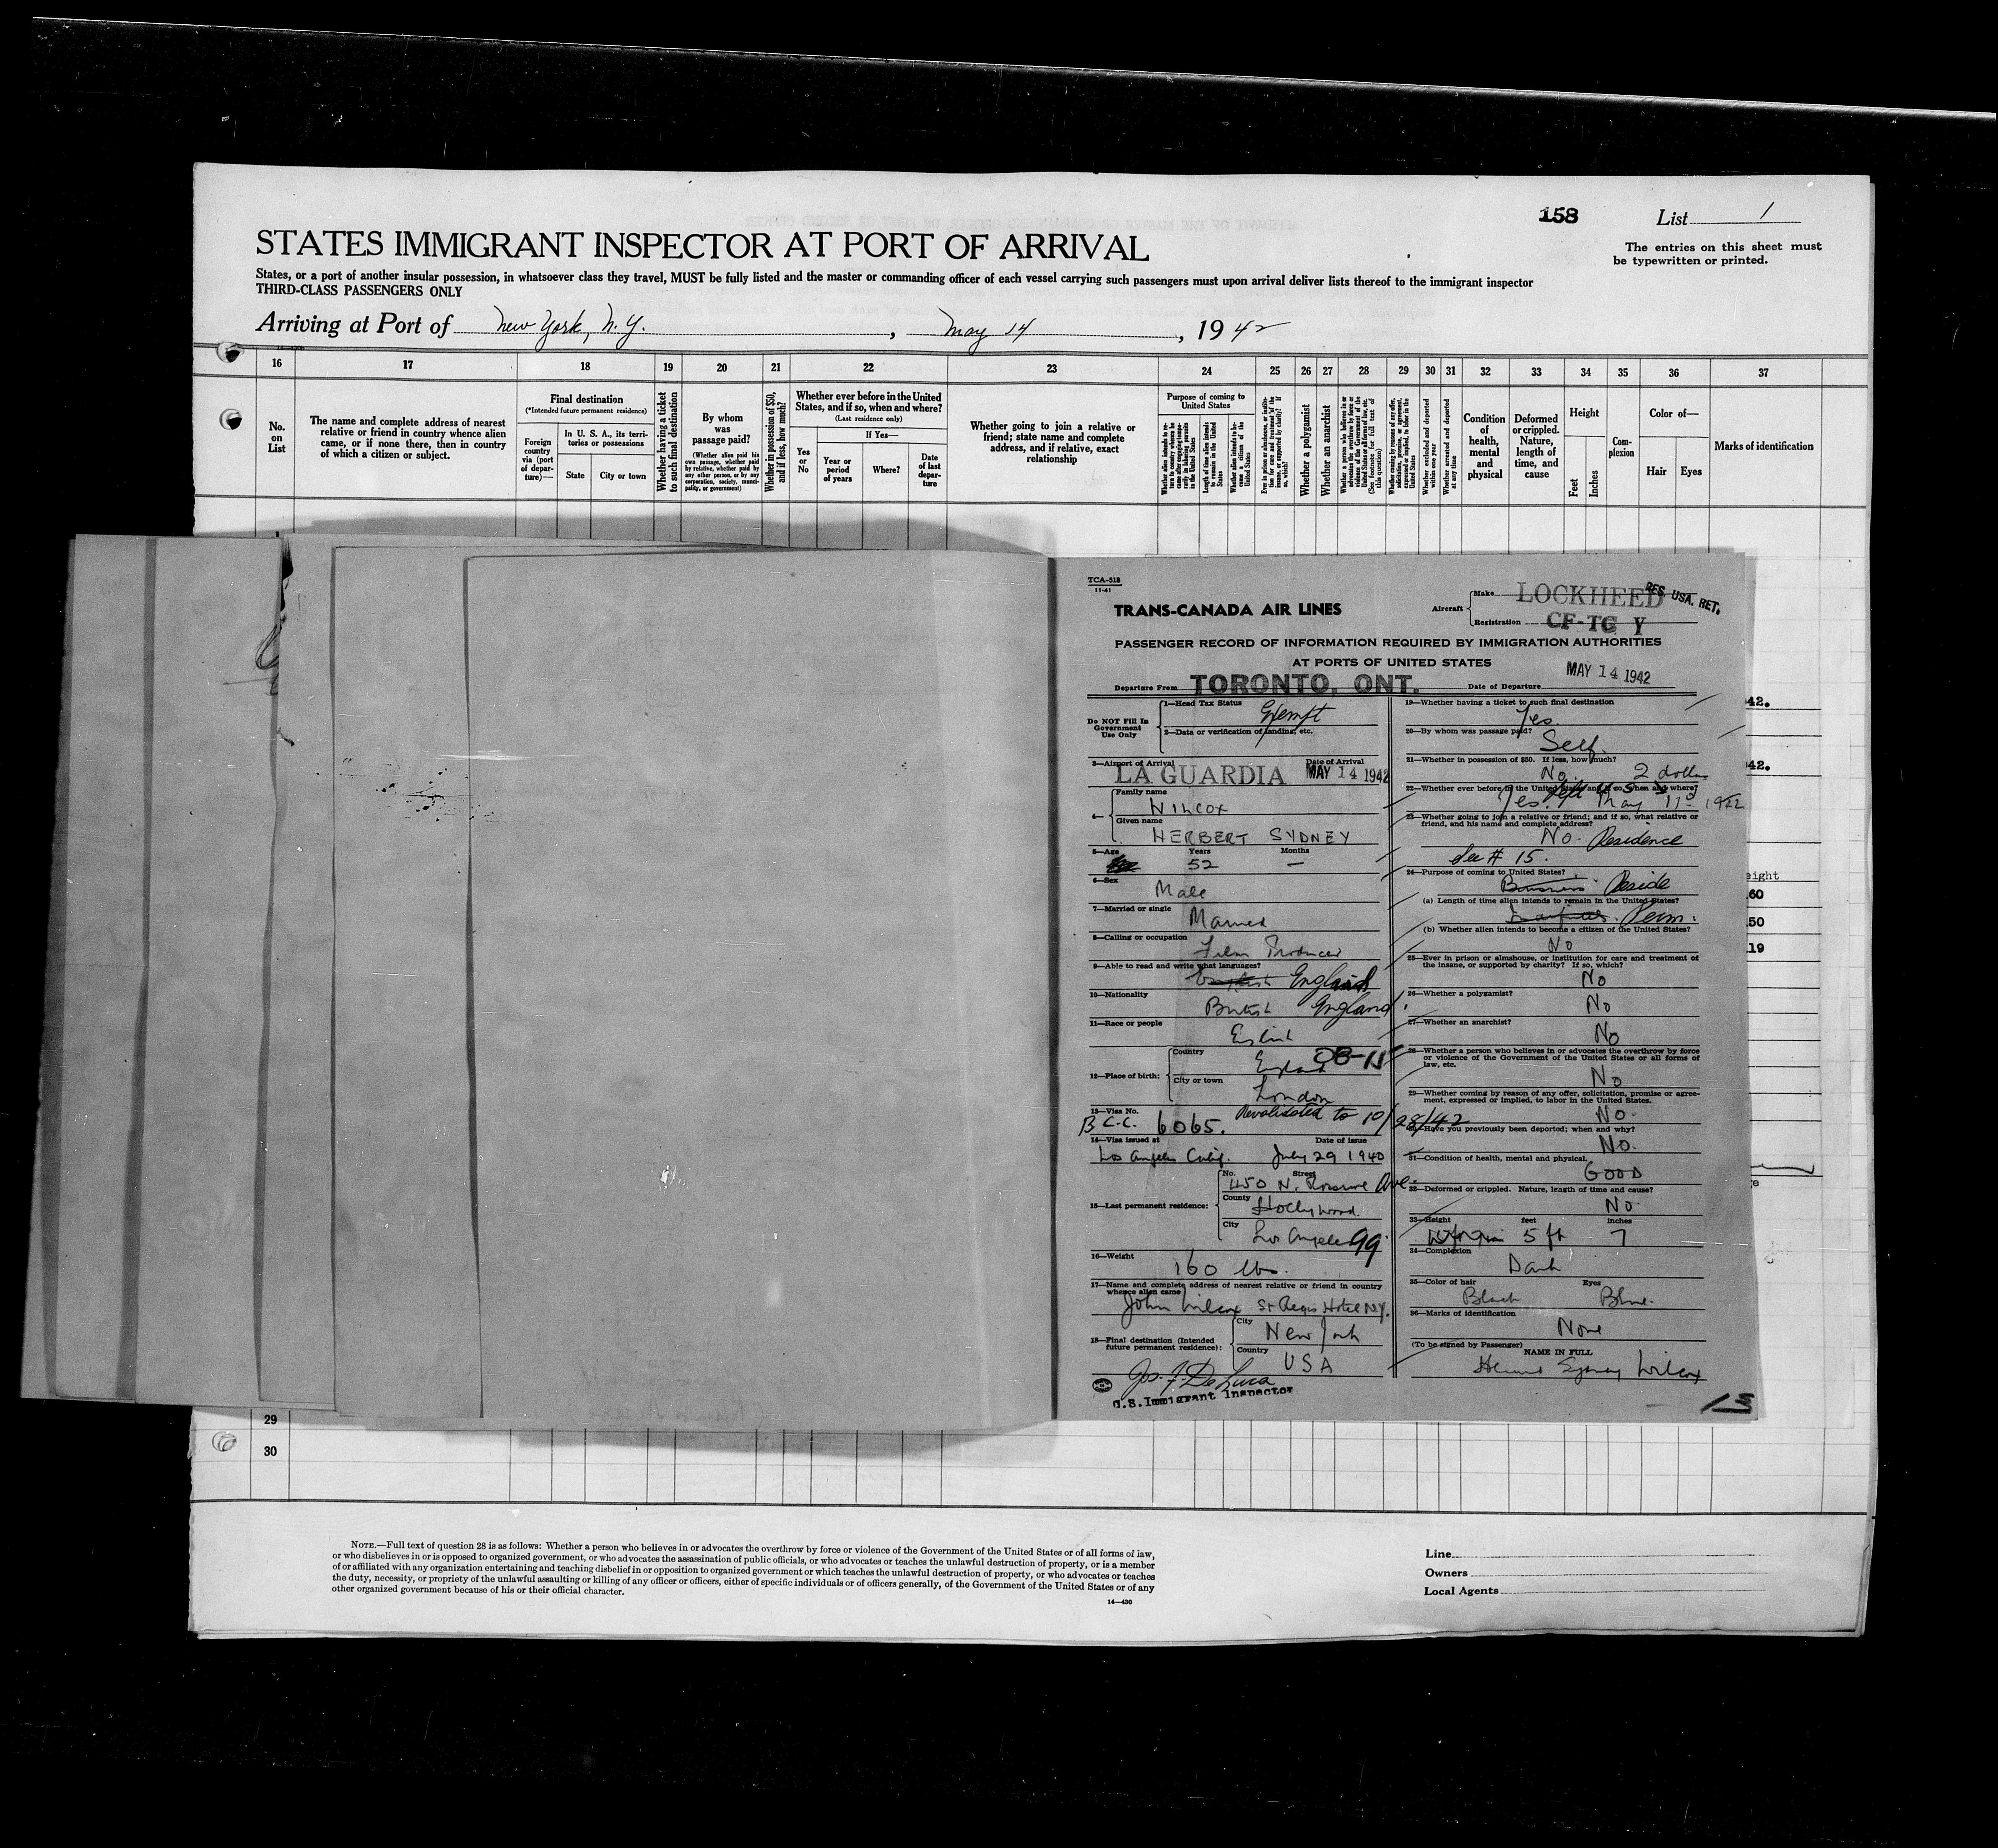 158
List 1
STATES IMMIGRANT INSPECTOR AT PORT OF ARRIVAL
The entries on this sheet must
be typewritten or printed.
States, or a port of another insular possession, in whatsoever class they travel, MUST be fully listed and the master or commanding officer of each vessel carrying such passengers must upon arrival deliver lists thereof to the immigrant inspector
THIRD-CLASS PASSENGERS ONLY
Arriving at Port of New York, N.Y., May 14, 1942
16 17 18 19 20 21 22 23 24 25 26 27 28 29 30 31 32 33 34 35 36 37
No. on List
The name and complete address of nearest relative or friend in country whence alien came, or if none there, then in country of which a citizen or subject.
Final destination
(*Intended future permanent residence)
Foreign country via (port of departure)—
In U. S. A., its territories or possessions
State
City or town
Whether having a ticket to such final destination
By whom was passage paid?
(Whether alien paid his own passage, whether paid by relative, whether paid by any other person, or by any corporation, society, municipality, or government)
Whether in possession of $50, and if less, how much?
Whether ever before in the United States, and if so, when and where?
(Last residence only)
Yes or No
If Yes—
Year or period of years
Where?
Date of last departure
Whether going to join a relative or friend; state name and complete address, and if relative, exact relationship
Purpose of coming to United States
Length of time alien intends to remain in the United States
Whether alien intends to become a citizen of the United States
Whether a polygamist
Whether an anarchist
Whether excluded and deported within one year
Whether arrested and deported at any time
Condition of health, mental and physical
Deformed or crippled. Nature, length of time, and cause
Height
Feet
Inches
Complexion
Color of—
Hair
Eyes
Marks of identification
TCA-518
11-41
TRANS-CANADA AIR LINES
Aircraft
Make LOCKHEED
RES. USA. RET.
Registration CF-TC Y
PASSENGER RECORD OF INFORMATION REQUIRED BY IMMIGRATION AUTHORITIES
AT PORTS OF UNITED STATES
Departure From TORONTO, ONT.
Date of Departure MAY 14 1942
Do NOT Fill In
Government
Use Only
1—Head Tax Status
Exempt
2—Data or verification of landing, etc.
3—Airport of Arrival
Date of Arrival
LA GUARDIA MAY 14 1942
4—
Family name
WILCOX
Given name
HERBERT SYDNEY
5—Age Years Months
52 —
6—Sex
Male
7—Married or single
Married
8—Calling or occupation
Film Producer
9—Able to read and write what languages?
English
10—Nationality
British England
11—Race or people
English
12—Place of birth:
Country
England
City or town
London
13—Visa No.
B.C.C. 6065. Revalidated to 10/28/42
14—Visa issued at
Date of issue
Los Angeles Calif. July 29 1940
15—Last permanent residence:
No. Street
450 N. Rossmore Ave.
County
Hollywood
City
Los Angeles 99
16—Weight
160 lbs.
17—Name and complete address of nearest relative or friend in country
whence alien came
John Wilcox St Regis Hotel N.Y.
18—Final destination (Intended
future permanent residence):
City
New York
Country
USA
Jos. F. De Luca
U.S. Immigrant Inspector
19—Whether having a ticket to such final destination
Yes.
20—By whom was passage paid?
Self.
21—Whether in possession of $50. If less, how much?
No. 2 dollars
22—Whether ever before in the United States and if so, when and where?
Yes. left U.S. May 1942
23—Whether going to join a relative or friend; and if so, what relative or
friend, and his name and complete address?
No. Residence
See # 15.
24—Purpose of coming to United States?
Business Reside
(a) Length of time alien intends to remain in the United States?
Perm.
(b) Whether alien intends to become a citizen of the United States?
No
25—Ever in prison or almshouse, or institution for care and treatment of
the insane, or supported by charity? If so, which?
No
26—Whether a polygamist?
No
27—Whether an anarchist?
No
28—Whether a person who believes in or advocates the overthrow by force
or violence of the Government of the United States or all forms of
law, etc.
No
29—Whether coming by reason of any offer, solicitation, promise or agree-
ment, expressed or implied, to labor in the United States.
No.
30—Have you previously been deported; when and why?
No.
31—Condition of health, mental and physical.
GOOD
32—Deformed or crippled. Nature, length of time and cause?
No
33—Height feet inches
5 ft 7
34—Complexion
Dark
35—Color of hair Eyes
Black Blue.
36—Marks of identification
None
(To be signed by Passenger)
NAME IN FULL
Herbert Sydney Wilcox
42.
42.
eight
60
50
19
29
30
NOTE.—Full text of question 28 is as follows: Whether a person who believes in or advocates the overthrow by force or violence of the Government of the United States or of all forms of law,
or who disbelieves in or is opposed to organized government, or who advocates the assassination of public officials, or who advocates or teaches the unlawful destruction of property, or is a member
of or affiliated with any organization entertaining and teaching disbelief in or opposition to organized government or which teaches the unlawful destruction of property, or who advocates or teaches
the duty, necessity, or propriety of the unlawful assaulting or killing of any officer or officers, either of specific individuals or of officers generally, of the Government of the United States or of any
other organized government because of his or their official character.
14—430
Line
Owners
Local Agents